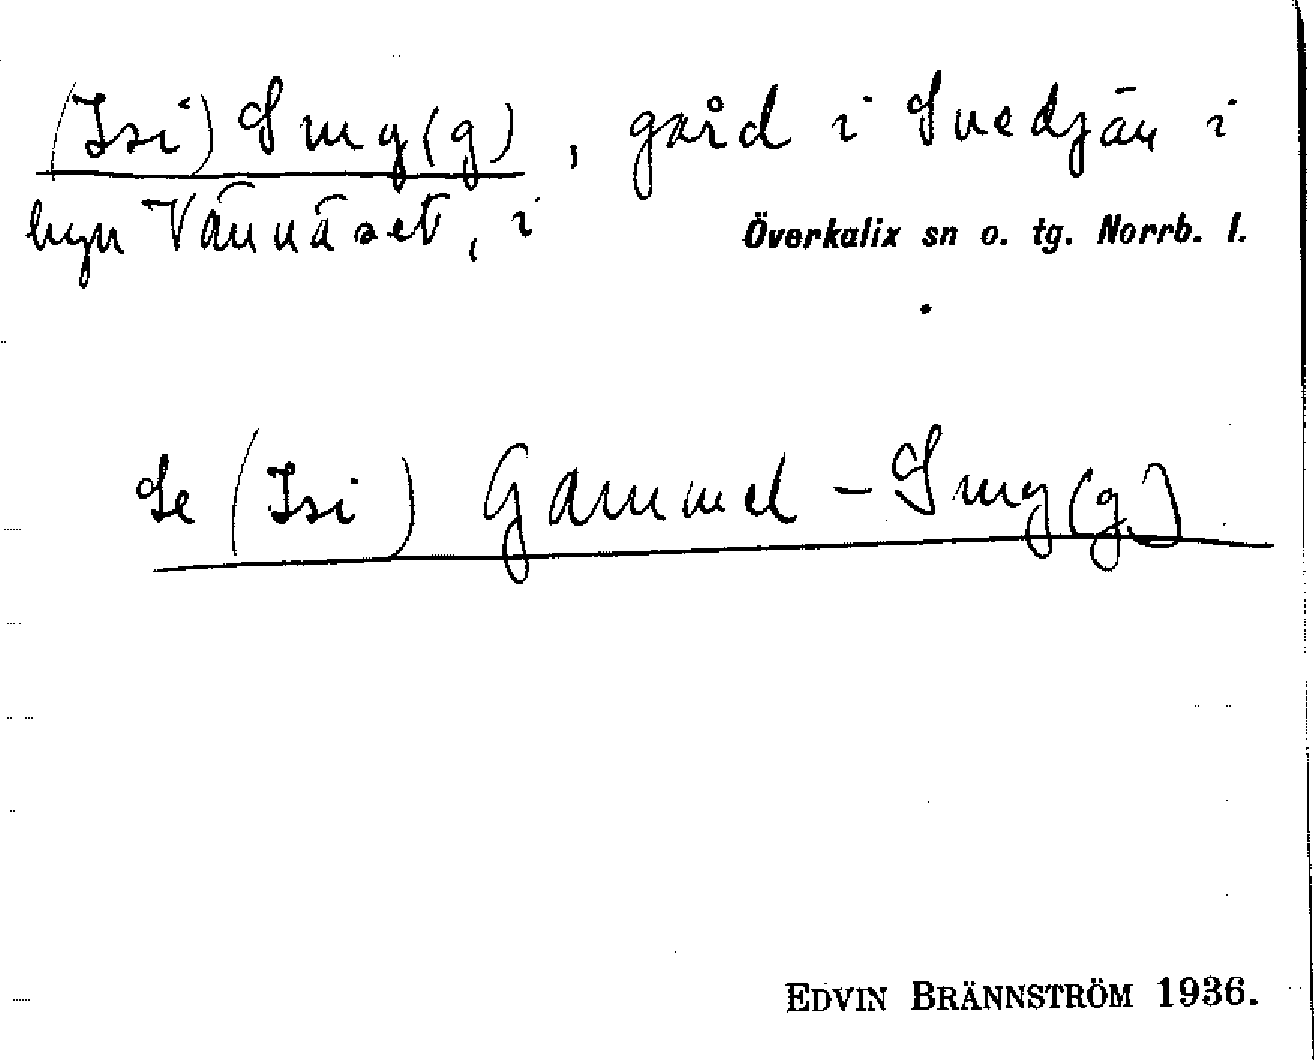 (Isi) Smg(g), gård i Svedjän i
byn Vännäset, i Överkalix sn o. tg. Norrb. l.
Se (Isi) Gammel-Smg(g)
EDVIN BRÄNNSTRÖM 1936.